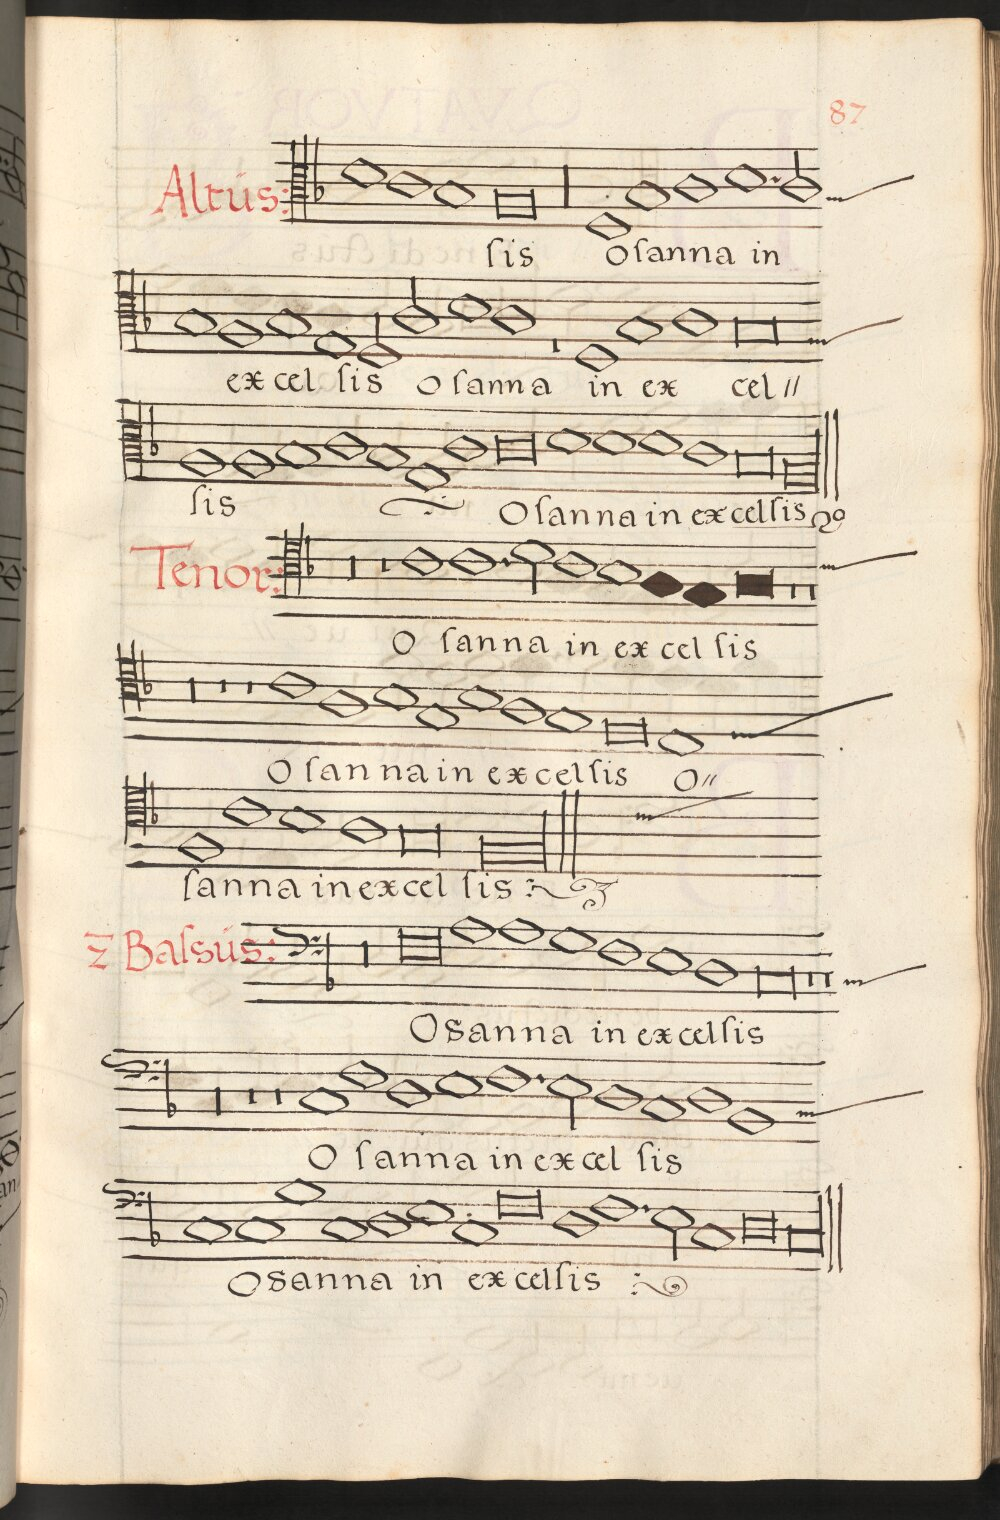 87
Altus:
ſis Oſanna in
excelſis Oſanna in ex cel //
ſis Oſanna in excelſis
Tenor:
O ſanna in excelſis
Oſanna in excelſis O //
ſanna in excel ſis :
Baſsus:
Osanna in excelſis
O ſanna in excel ſis
Osanna in excelſis :